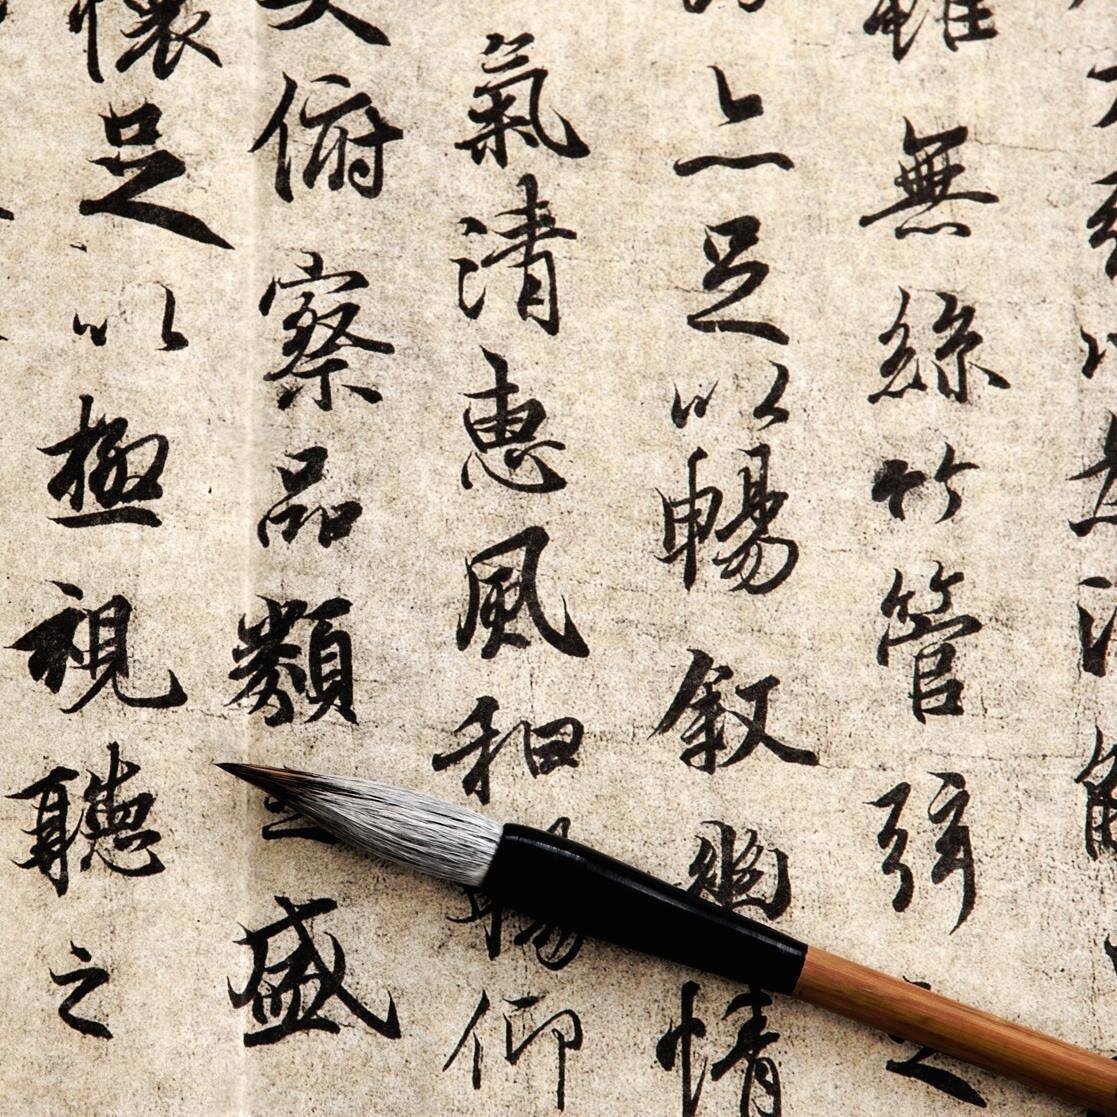 雖無絲竹管弦之
亦足以暢叙幽情
氣清惠風和暢仰
大俯察品類之盛
懷足以極視聽之